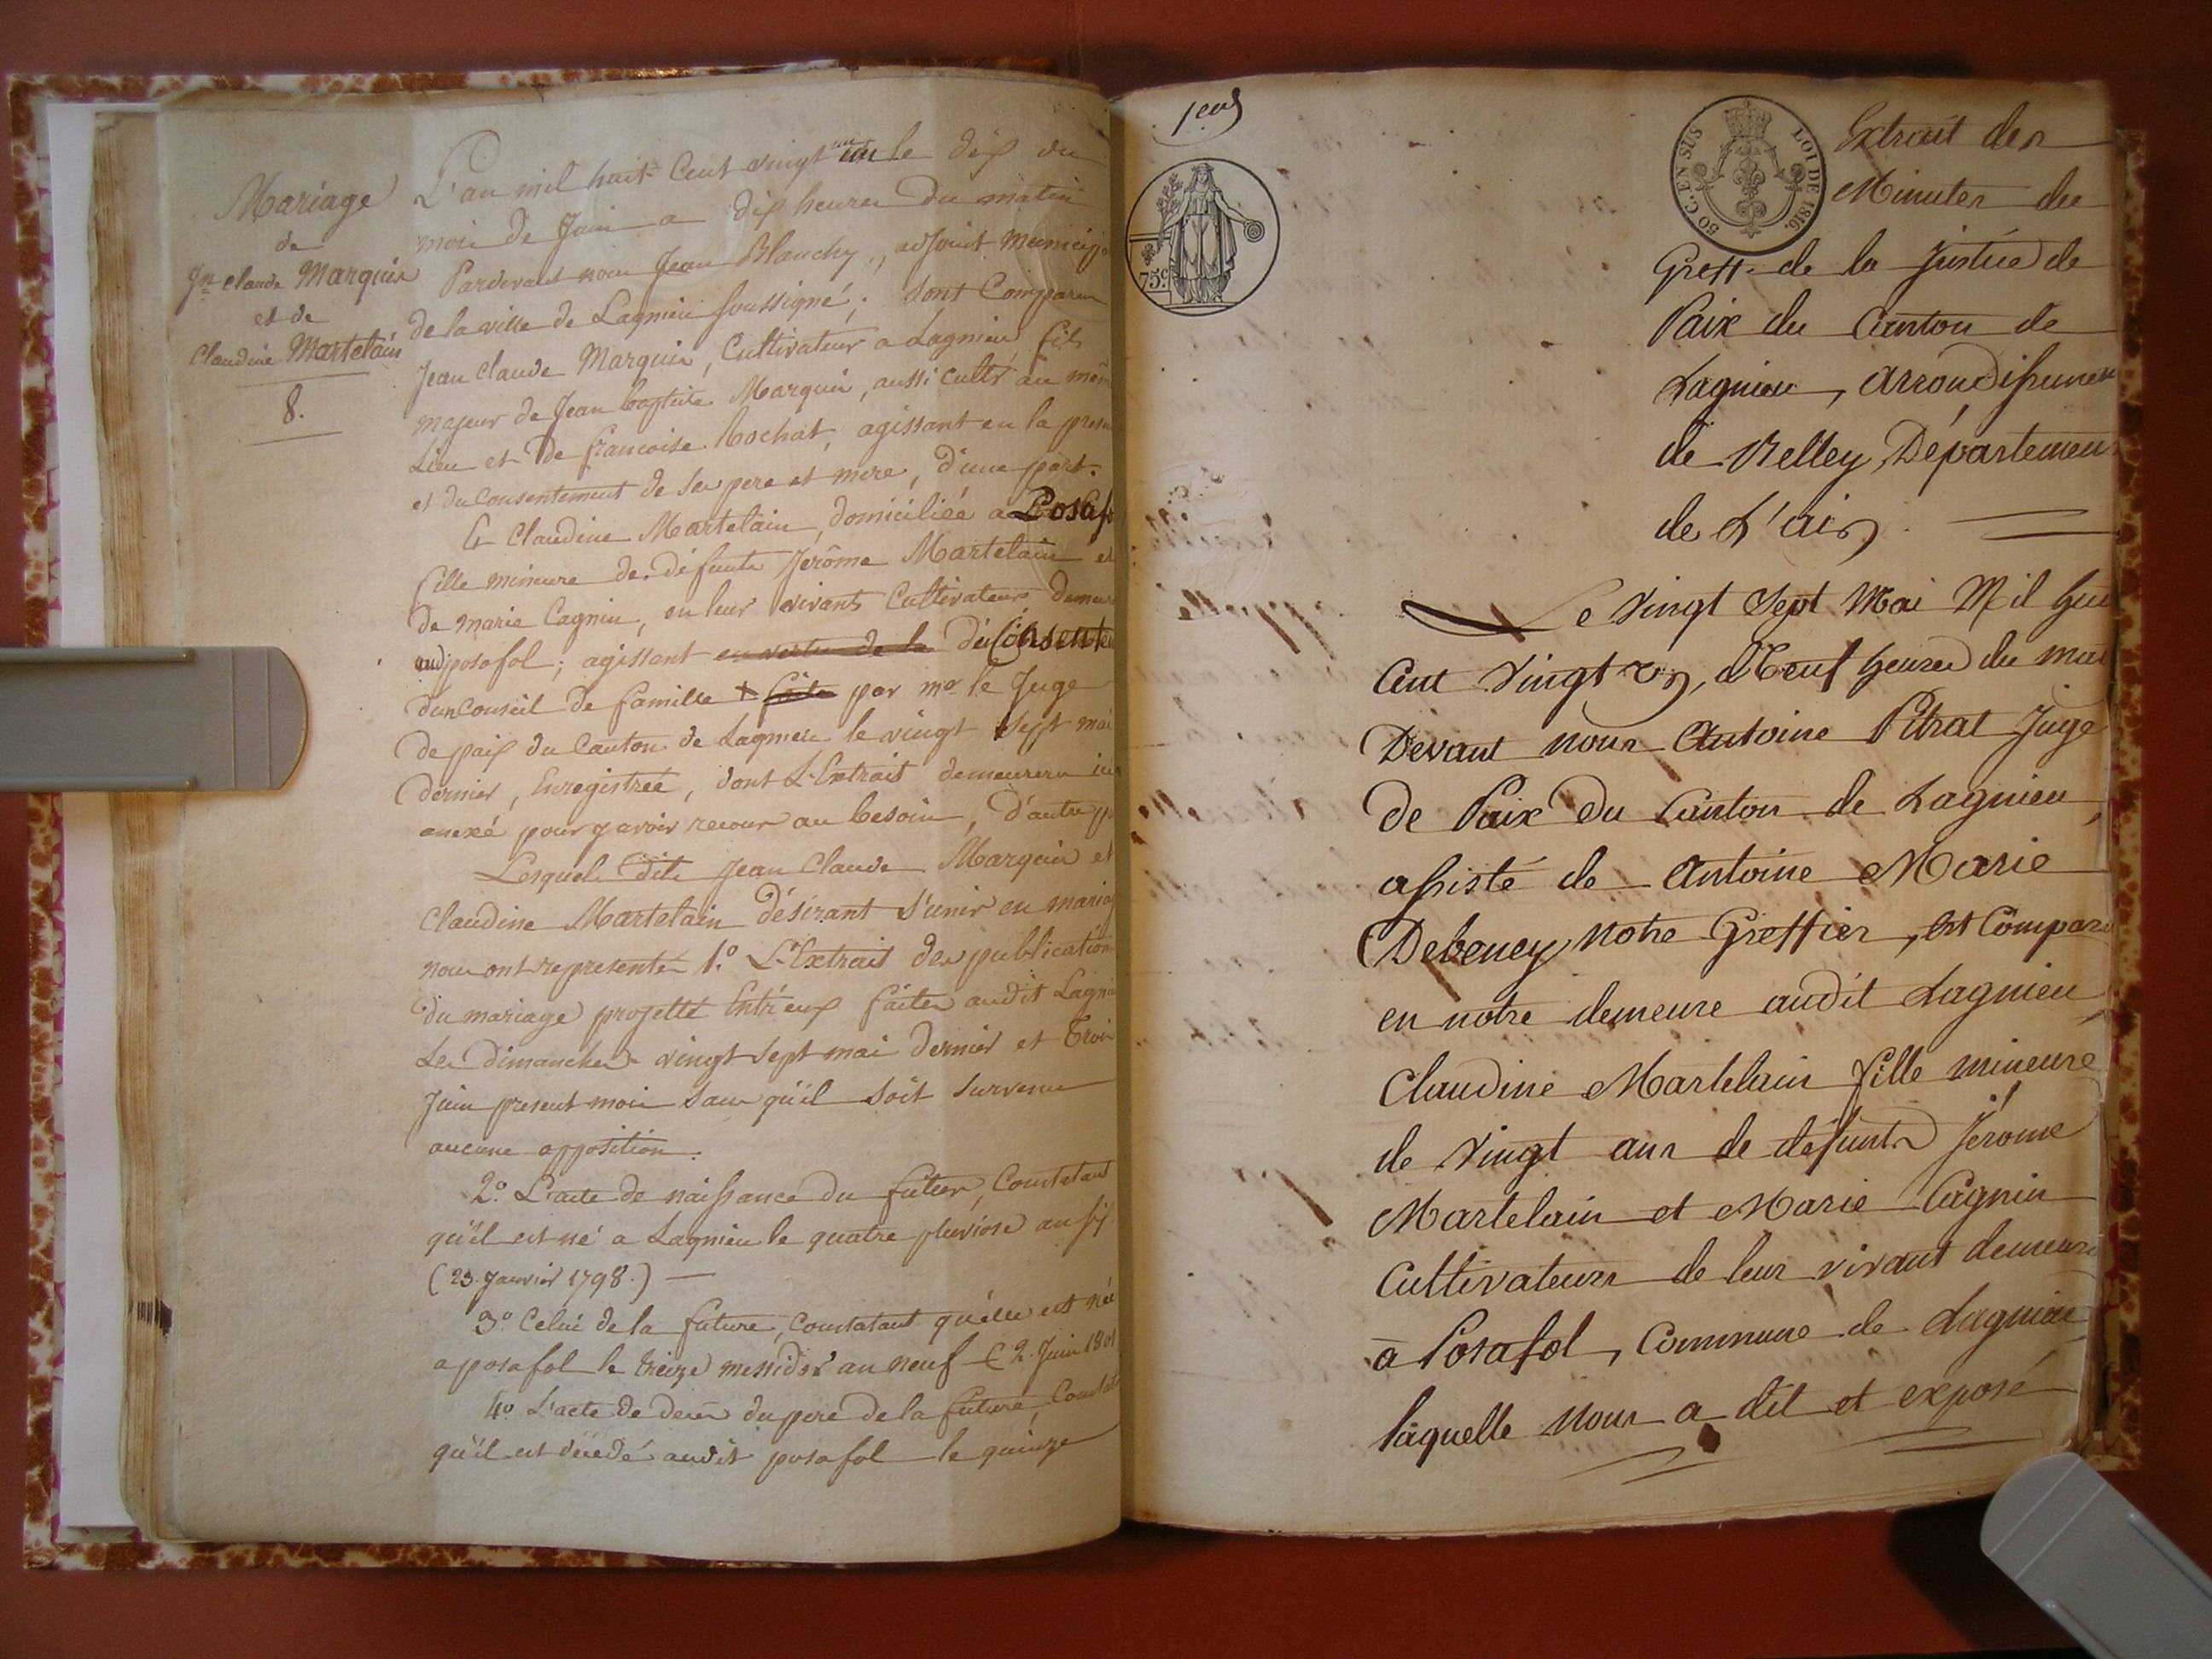 Mariage
de
Jn Claude Marquis
et de
Claudine Martelain
8.
L'an mil huit Cent vingt un le dix du
mois de Juin a dix heures du matin
Pardevant nous Jean Blanchy, adjoint Municip
de la ville de Lagnieu soussigné; sont Comparus
Jean Claude Marquis, Cultivateur a Lagnieu fils
majeur de Jean baptiste Marquis, aussi cultr au même
Lieu et de francoise bochat, agissant en la presen
et du Consentement de ses pere et mere, d'une part.
Et Claudine Martelain, domiciliée a Posaf
fille mineure de défunts Jerôme Martelain et
de marie Cagnin, en leur vivants Cultivateurs demeur
audposafol; agissant en vertu de la du Consente
d'un Conseil de famille + faite par mr le Juge
de paix du Canton de Lagnieu le vingt sept mai
dernier, Enregistrée, dont L'Extrait demeurera
anexé pour y avoir recour au besoin, D'autre p
Lesquels dits Jean Claude Marquis et
Claudine Martelain désirant s'unir en mariag
nous ont representé 1.° L'Extrait des publication
du mariage projetté Entr'eux faites audit Lagni
Les Dimanches vingt sept mai dernier et trois
Juin present mois sans qu'il soit survenu
aucune opposition.
2.° L'acte de naissance du futur, Constatant
qu'il est né a Lagnieu le quatre pluviose an six
(23. Janvier 1798.)
3.° Celui de la future, Constatant qu'elle est née
a posafol le treize messidor an neuf (2. Juin 1801
4.° L'acte de décès du pere de la future, Constat
qu'il est décédé audit posafol le quinze
75.c
50 C. EN SUS LOI DE 1816.
Extrait des
Minutes du
Greff. de la Justice de
Paix du Canton de
Lagnieu, arrondissement
de Belley, Département
de L'ain.
Le Vingt Sept Mai Mil huit
Cent Vingt un, à Neuf heures du mat
Devant nous Antoine Pitrat Juge
de Paix du Canton de Lagnieu,
assisté de Antoine Marie
Debeney notre Greffier, est Comparu
en notre demeure audit Lagnieu,
Claudine Martelain fille mineure
de Vingt ans de défunts Jérome
Martelain et Marie Cagnin
Cultivateurs de leur vivant demeura
à Posafol, Commune de Lagnieu
laquelle nous a dit et exposé